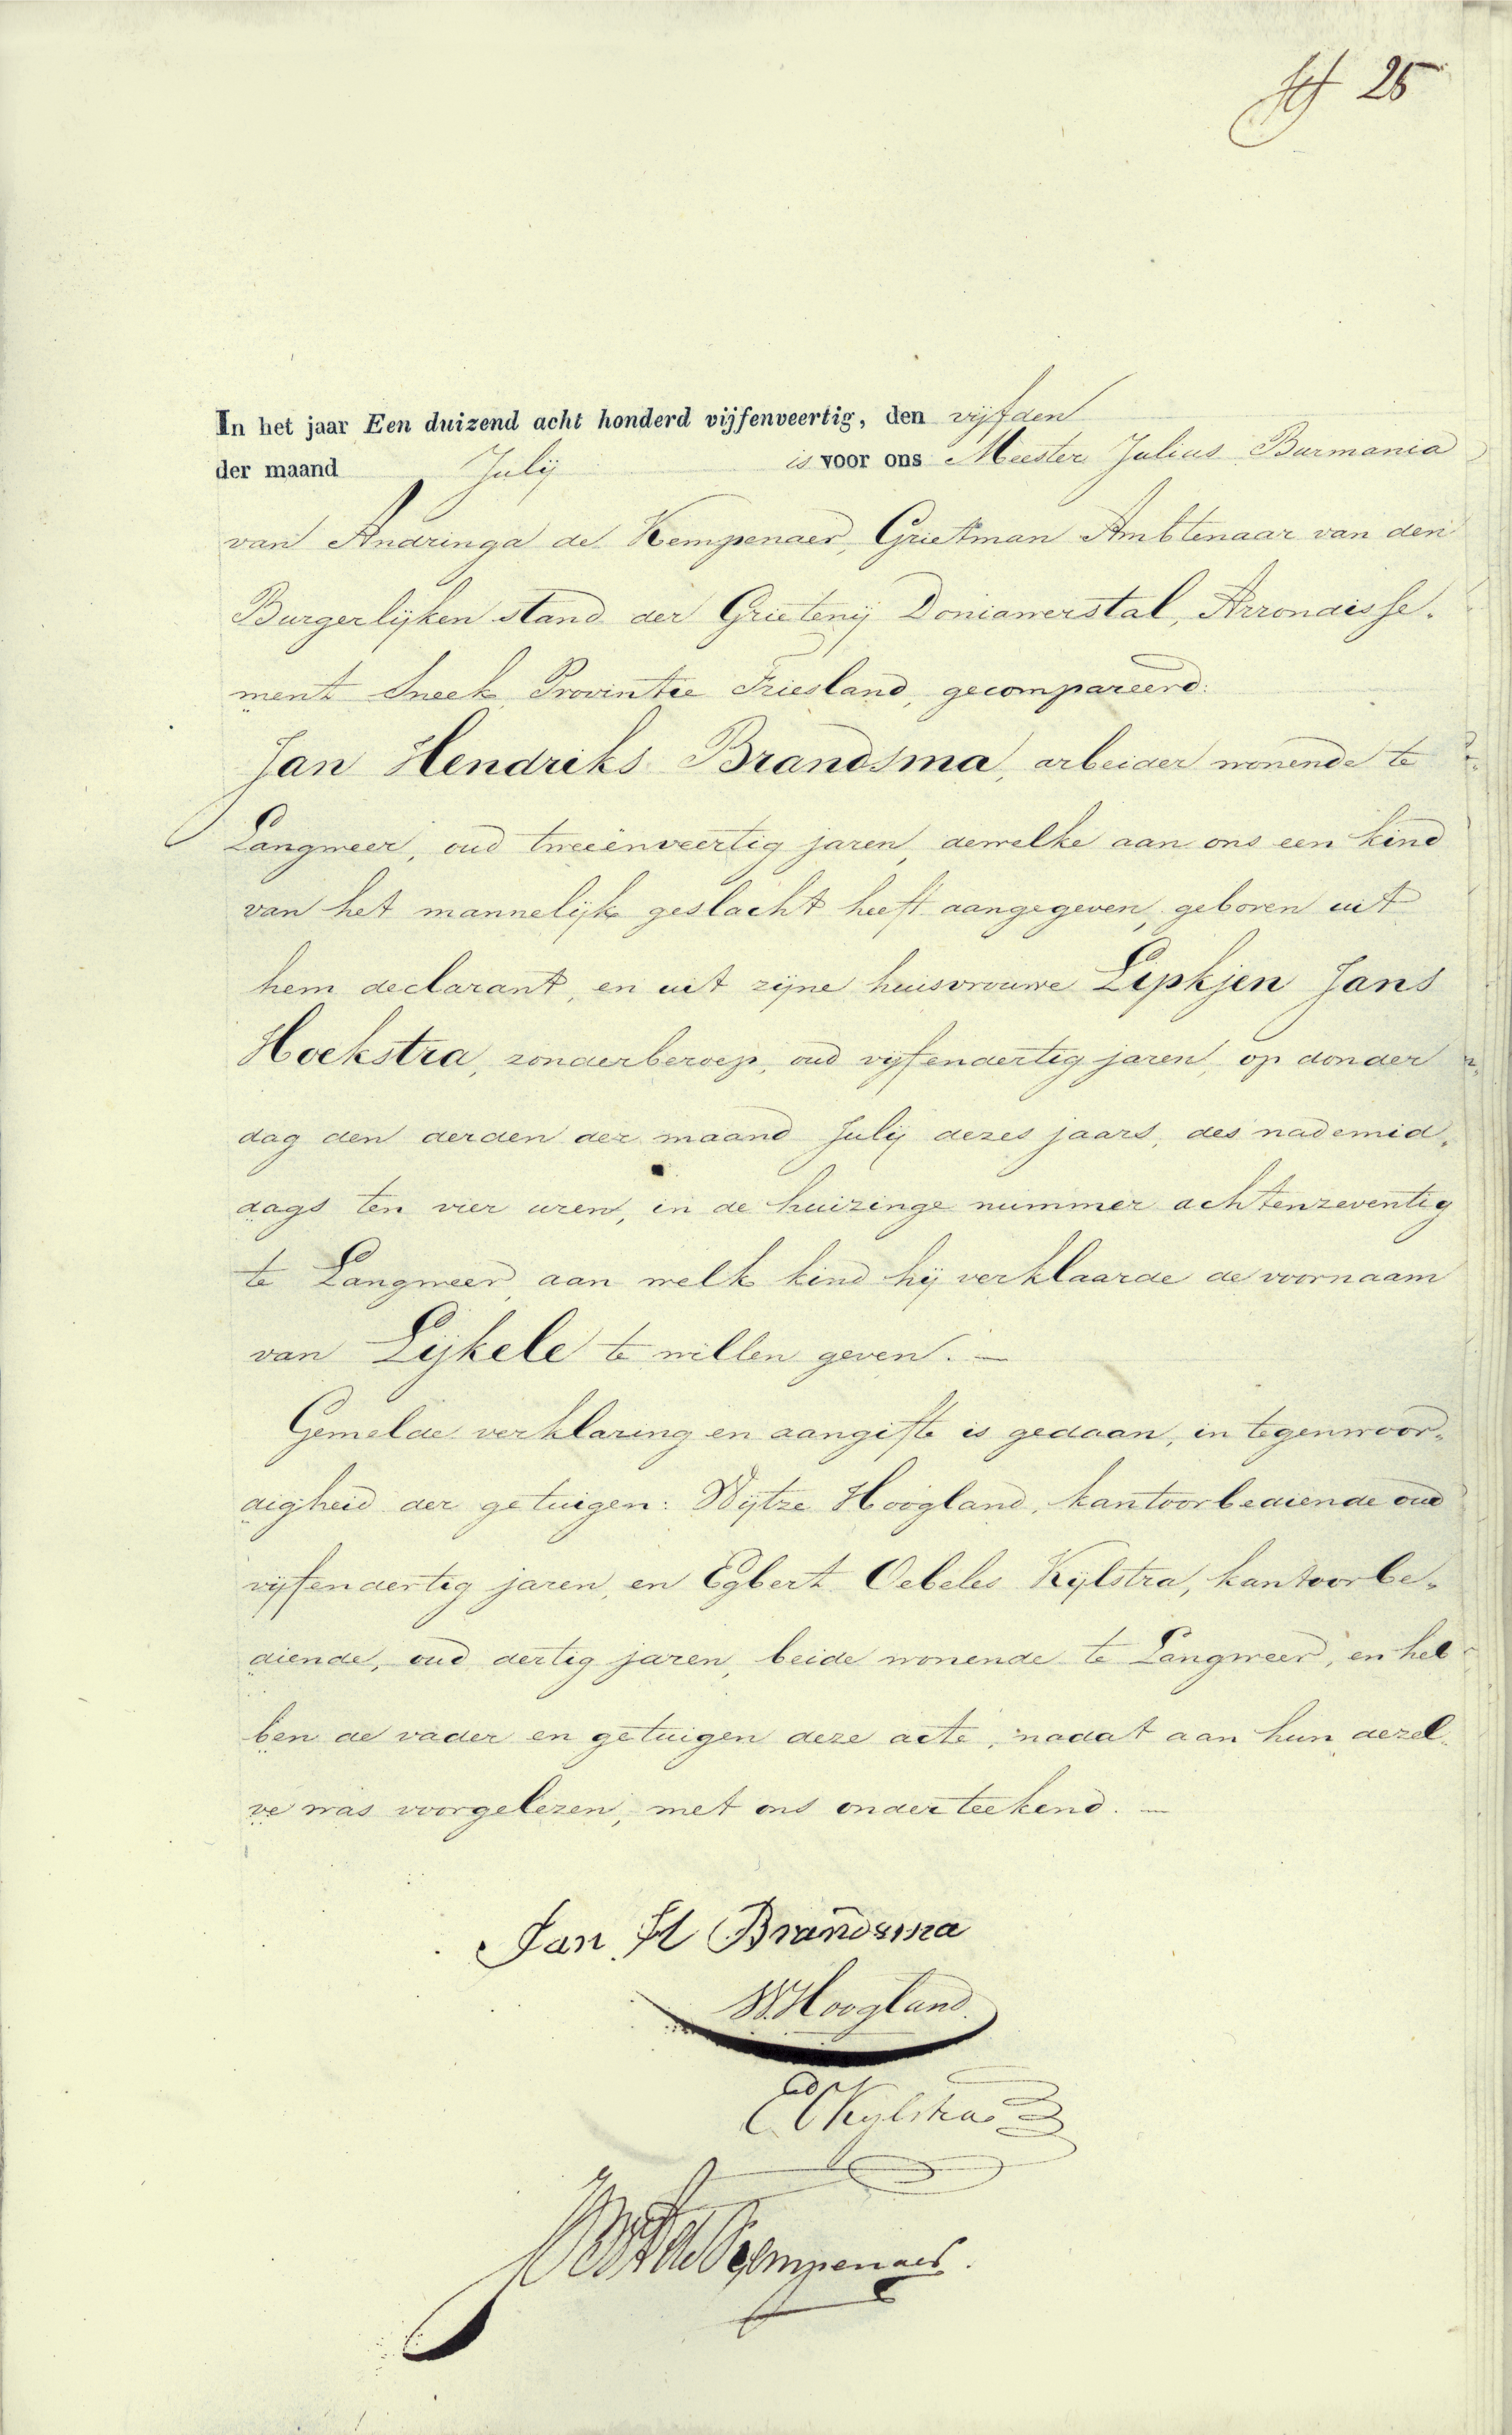 N 25
In het jaar Een duizend acht honderd vijfenveertig, den vijfden
der maand Julij is voor ons Meester Julius Burmania
van Andringa de Kempenaer, Grietman Ambtenaar van den
Burgerlijken stand der Grietenij Doniawerstal, Arrondisse-
ment Sneek, Provintie Friesland, gecompareerd:
Jan Hendriks Brandsma, arbeider wonende te
Langweer, oud tweeënveertig jaren, dewelke aan ons een kind
van het mannelijk geslacht heeft aangegeven, geboren uit
hem declarant, en uit zijne huisvrouwe Lipkjen Jans
Hoekstra, zonder beroep, oud vijfendertig jaren, op donder
dag den derden der maand Julij dezes jaars, des nademid-
dags ten vier uren, in de huizinge nummer achtenzeventig
te Langweer, aan welk kind hij verklaarde de voornaam
van Lijkele te willen geven. —
Gemelde verklaring en aangifte is gedaan, in tegenwoor-
digheid der getuigen: Wijtze Hoogland, kantoorbediende oud
vijfendertig jaren, en Egbert Oebeles Kijlstra, kantoorbe-
diende, oud dertig jaren, beide wonende te Langweer, en heb
ben de vader en getuigen deze acte, nadat aan hun dezel-
ve was voorgelezen, met ons onderteekend. —
Jan H Brandsma
W. Hoogland.
E O Kylstra
de Kempenaer.